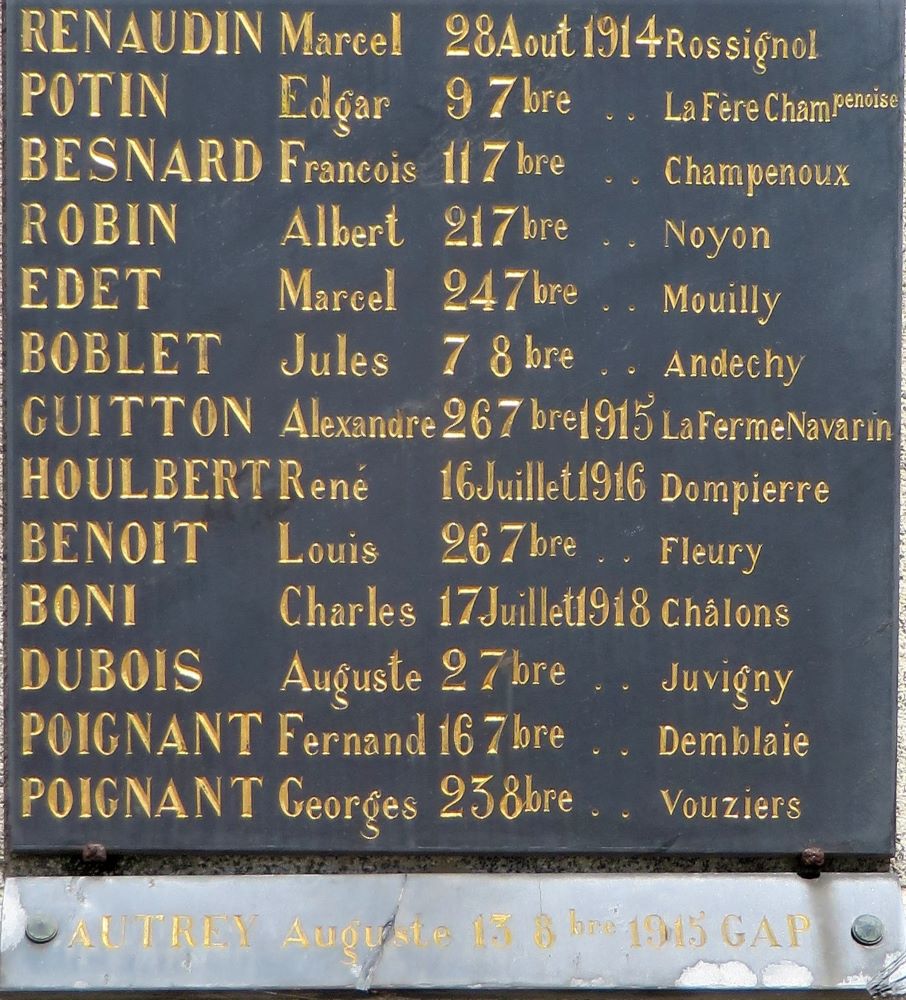 RENAUDIN Marcel 28 Aout 1914 Rossignol
POTIN Edgar 9 7bre .. La Fère Champenoise
BESNARD Francois 11 7bre .. Champenoux
ROBIN Albert 21 7bre .. Noyon
EDET Marcel 24 7bre .. Mouilly
BOBLET Jules 7 8bre .. Andechy
GUITTON Alexandre 26 7bre 1915 La Ferme Navarin
HOULBERT René 16 Juillet 1916 Dompierre
BENOIT Louis 26 7bre .. Fleury
BONI Charles 17 Juillet 1918 Châlons
DUBOIS Auguste 2 7bre .. Juvigny
POIGNANT Fernand 16 7bre .. Demblaie
POIGNANT Georges 23 8bre .. Vouziers
AUTREY Auguste 13 8bre 1915 GAP